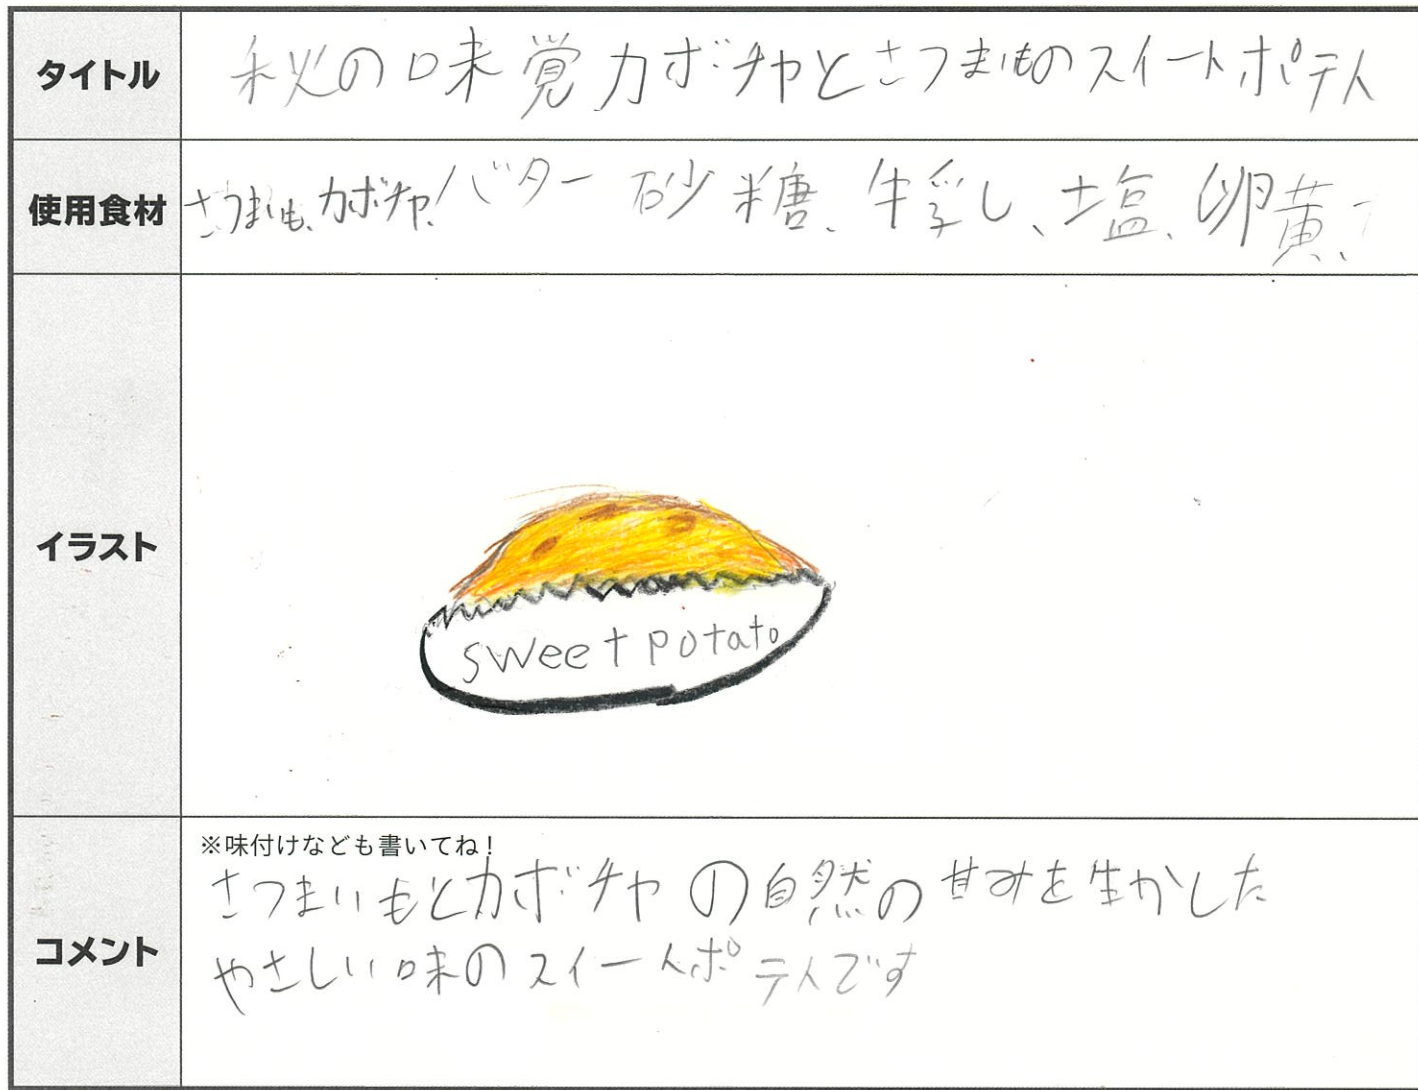 タイトル
秋の味覚カボチャとさつまいものスイートポテト
使用食材
さつまいも、カボチャ、バター 砂糖、牛乳し、塩、卵黄、
イラスト
sweet potato
コメント
※味付けなども書いてね！
さつまいもとカボチャの自然の甘みを生かした
やさしい味のスイートポテトです